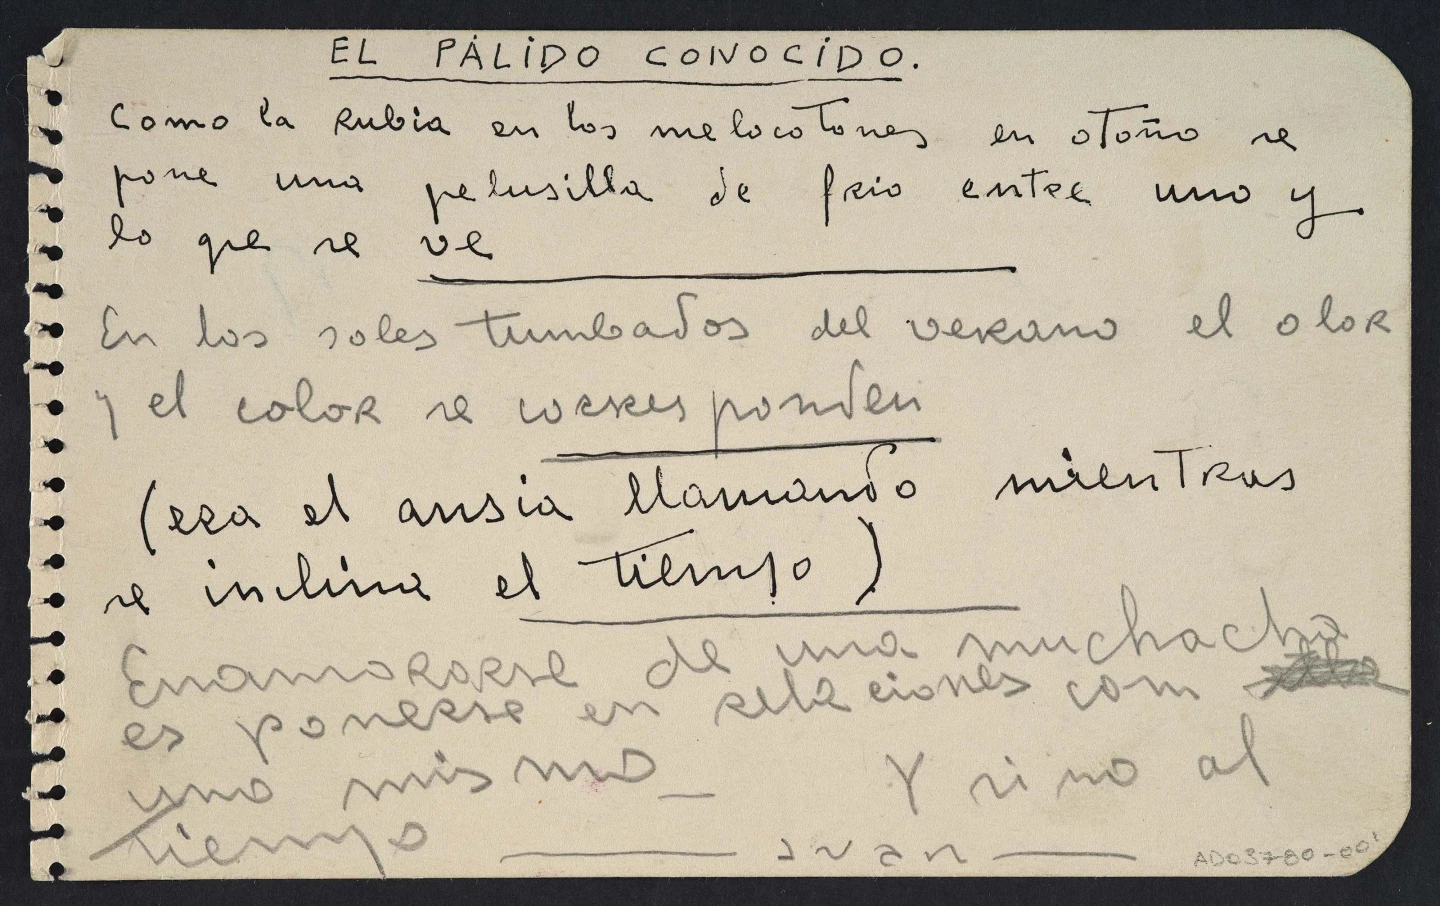 EL PÁLIDO CONOCIDO.
Como la rubia en los melocotones en otoño se
pone una pelusilla de frio entre uno y
lo que se ve
En los soles tumbados del verano el olor
y el color se corresponden
(era el ansia llamando mientras
se inclina el tiempo)
Enamorarse de una muchacha
es ponerse en relaciones com
uno mismo_ Y si no al
tiempo
AD03780-001